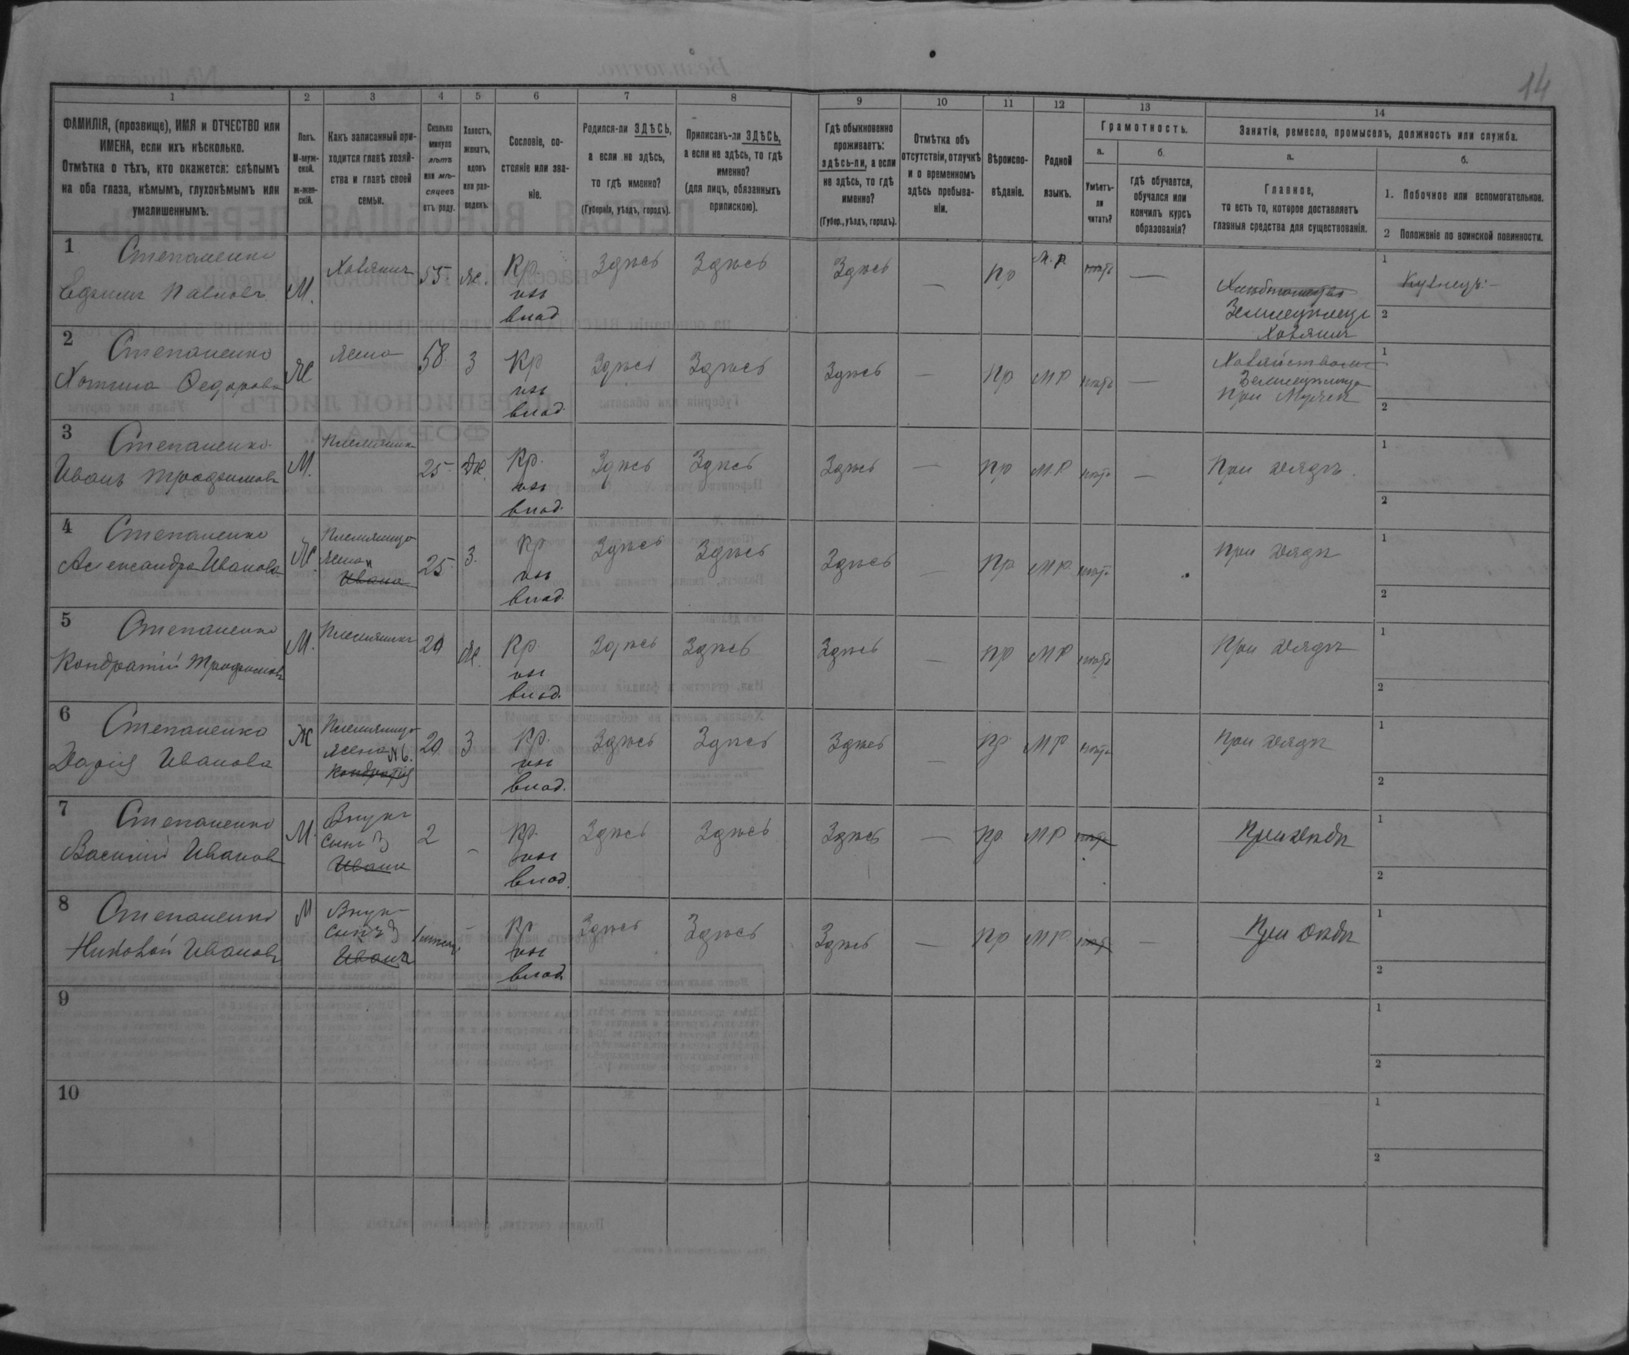 14
1 2 3 4 5 6 7 8 9 10 11 12 13 14
ФАМИЛІЯ, (прозвище), ИМЯ и ОТЧЕСТВО или
ИМЕНА, если ихъ нѣсколько.
Отмѣтка о тѣхъ, кто окажется: слѣпымъ
на оба глаза, нѣмымъ, глухонѣмымъ или
умалишеннымъ.
Полъ.
М-муж-
ской.
ж-жен-
скій.
Какъ записанный при-
ходится главѣ хозяй-
ства и главѣ своей
семьи.
Сколько
минуло
лѣтъ
или мѣ-
сяцевъ
отъ роду.
Холостъ,
женатъ,
вдовъ
или раз-
веденъ.
Сословіе, со-
стояніе или зва-
ніе.
Родился-ли ЗДѢСЬ,
а если не здѣсь,
то гдѣ именно?
(Губернія, уѣздъ, городъ).
Приписанъ-ли ЗДѢСЬ,
а если не здѣсь, то гдѣ
именно?
(для лицъ, обязанныхъ
припискою).
Гдѣ обыкновенно
проживаетъ:
здѣсь-ли, а если
не здѣсь, то гдѣ
именно?
(Губер., уѣздъ, городъ).
Отмѣтка объ
отсутствіи, отлучкѣ
и о временномъ
здѣсь пребыва-
ніи.
Вѣроиспо-
вѣданіе.
Родной
языкъ.
Грамотность.
а.
Умѣетъ-
ли
читать?
б.
гдѣ обучается,
обучался или
кончилъ курсъ
образованія?
Занятія, ремесло, промыселъ, должность или служба.
а.
Главное,
то есть то, которое доставляетъ
главныя средства для существованія.
б.
1. Побочное или вспомогательное.
2 Положеніе по воинской повинности.
1 Степаненко
Павловъ М. Хозяинъ 55 Ж. Кр. Здѣсь Здѣсь Здѣсь — Пр М.Р. нѣтъ —
влад.
Земледѣлецъ
Хозяинъ
1 Кузнецъ
2
2 Степаненко
Федорова Ж жена 58 З Кр Здѣсь Здѣсь Здѣсь — Пр МР нѣтъ —
влад.
При Мужѣ
1
2
3 Степаненко
Иванъ М. 25 Ж. Кр. Здѣсь Здѣсь Здѣсь — Пр МР нѣтъ — При дядѣ
влад.
1
2
4 Степаненко
Александра Иванова Ж. Племянница
жена
Ивана
25 З. Кр Здѣсь Здѣсь Здѣсь — Пр МР нѣтъ При дядѣ
влад.
1
2
5 Степаненко
Кондратій М. Племянникъ Ж. Кр Здѣсь Здѣсь Здѣсь — Пр МР нѣтъ При дядѣ
влад.
1
2
6 Степаненко
Дарія Иванова Ж Племянница
жена
Кондратія
З Кр. Здѣсь Здѣсь Здѣсь — Пр. МР нѣтъ При дядѣ
влад.
1
2
7 Степаненко
Василій Ивановъ М. Внукъ
сынъ 3
Ивана
2 — Кр. Здѣсь Здѣсь Здѣсь — Пр МР нѣтъ
влад.
1
2
8 Степаненко
Николай Ивановъ М Внукъ
сынъ 3
Ивана
— Кр Здѣсь Здѣсь Здѣсь — Пр МР нѣтъ — При дядѣ
влад.
1
2
9
1
2
10
1
2